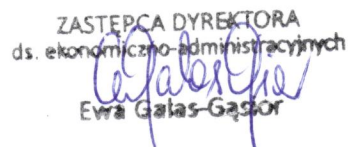 ZASTĘPCA DYREKTORA
ds. ekonomiczno-administracyjnych
Ewa Galas-Gąsior